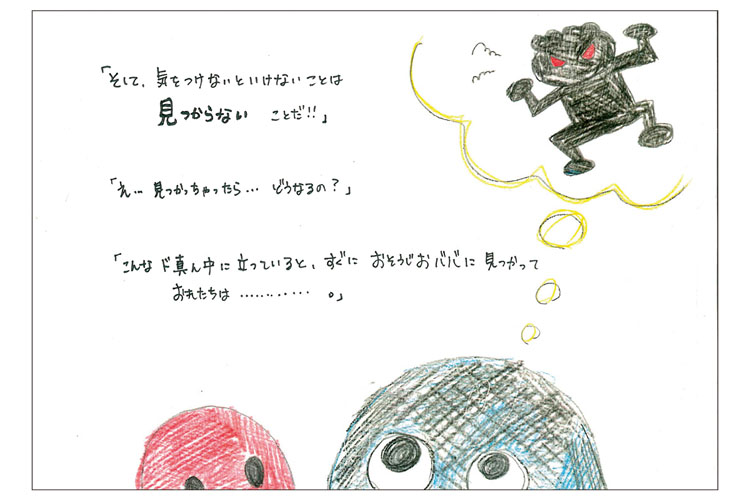 「そして、気をつけないといけないことは
見つからない ことだ!!」
「え… 見つかっちゃったら… どうなるの?」
「こんな ド真ん中に立っていると、すぐに おそうじおババに 見つかって
おれたちは ………… 。」